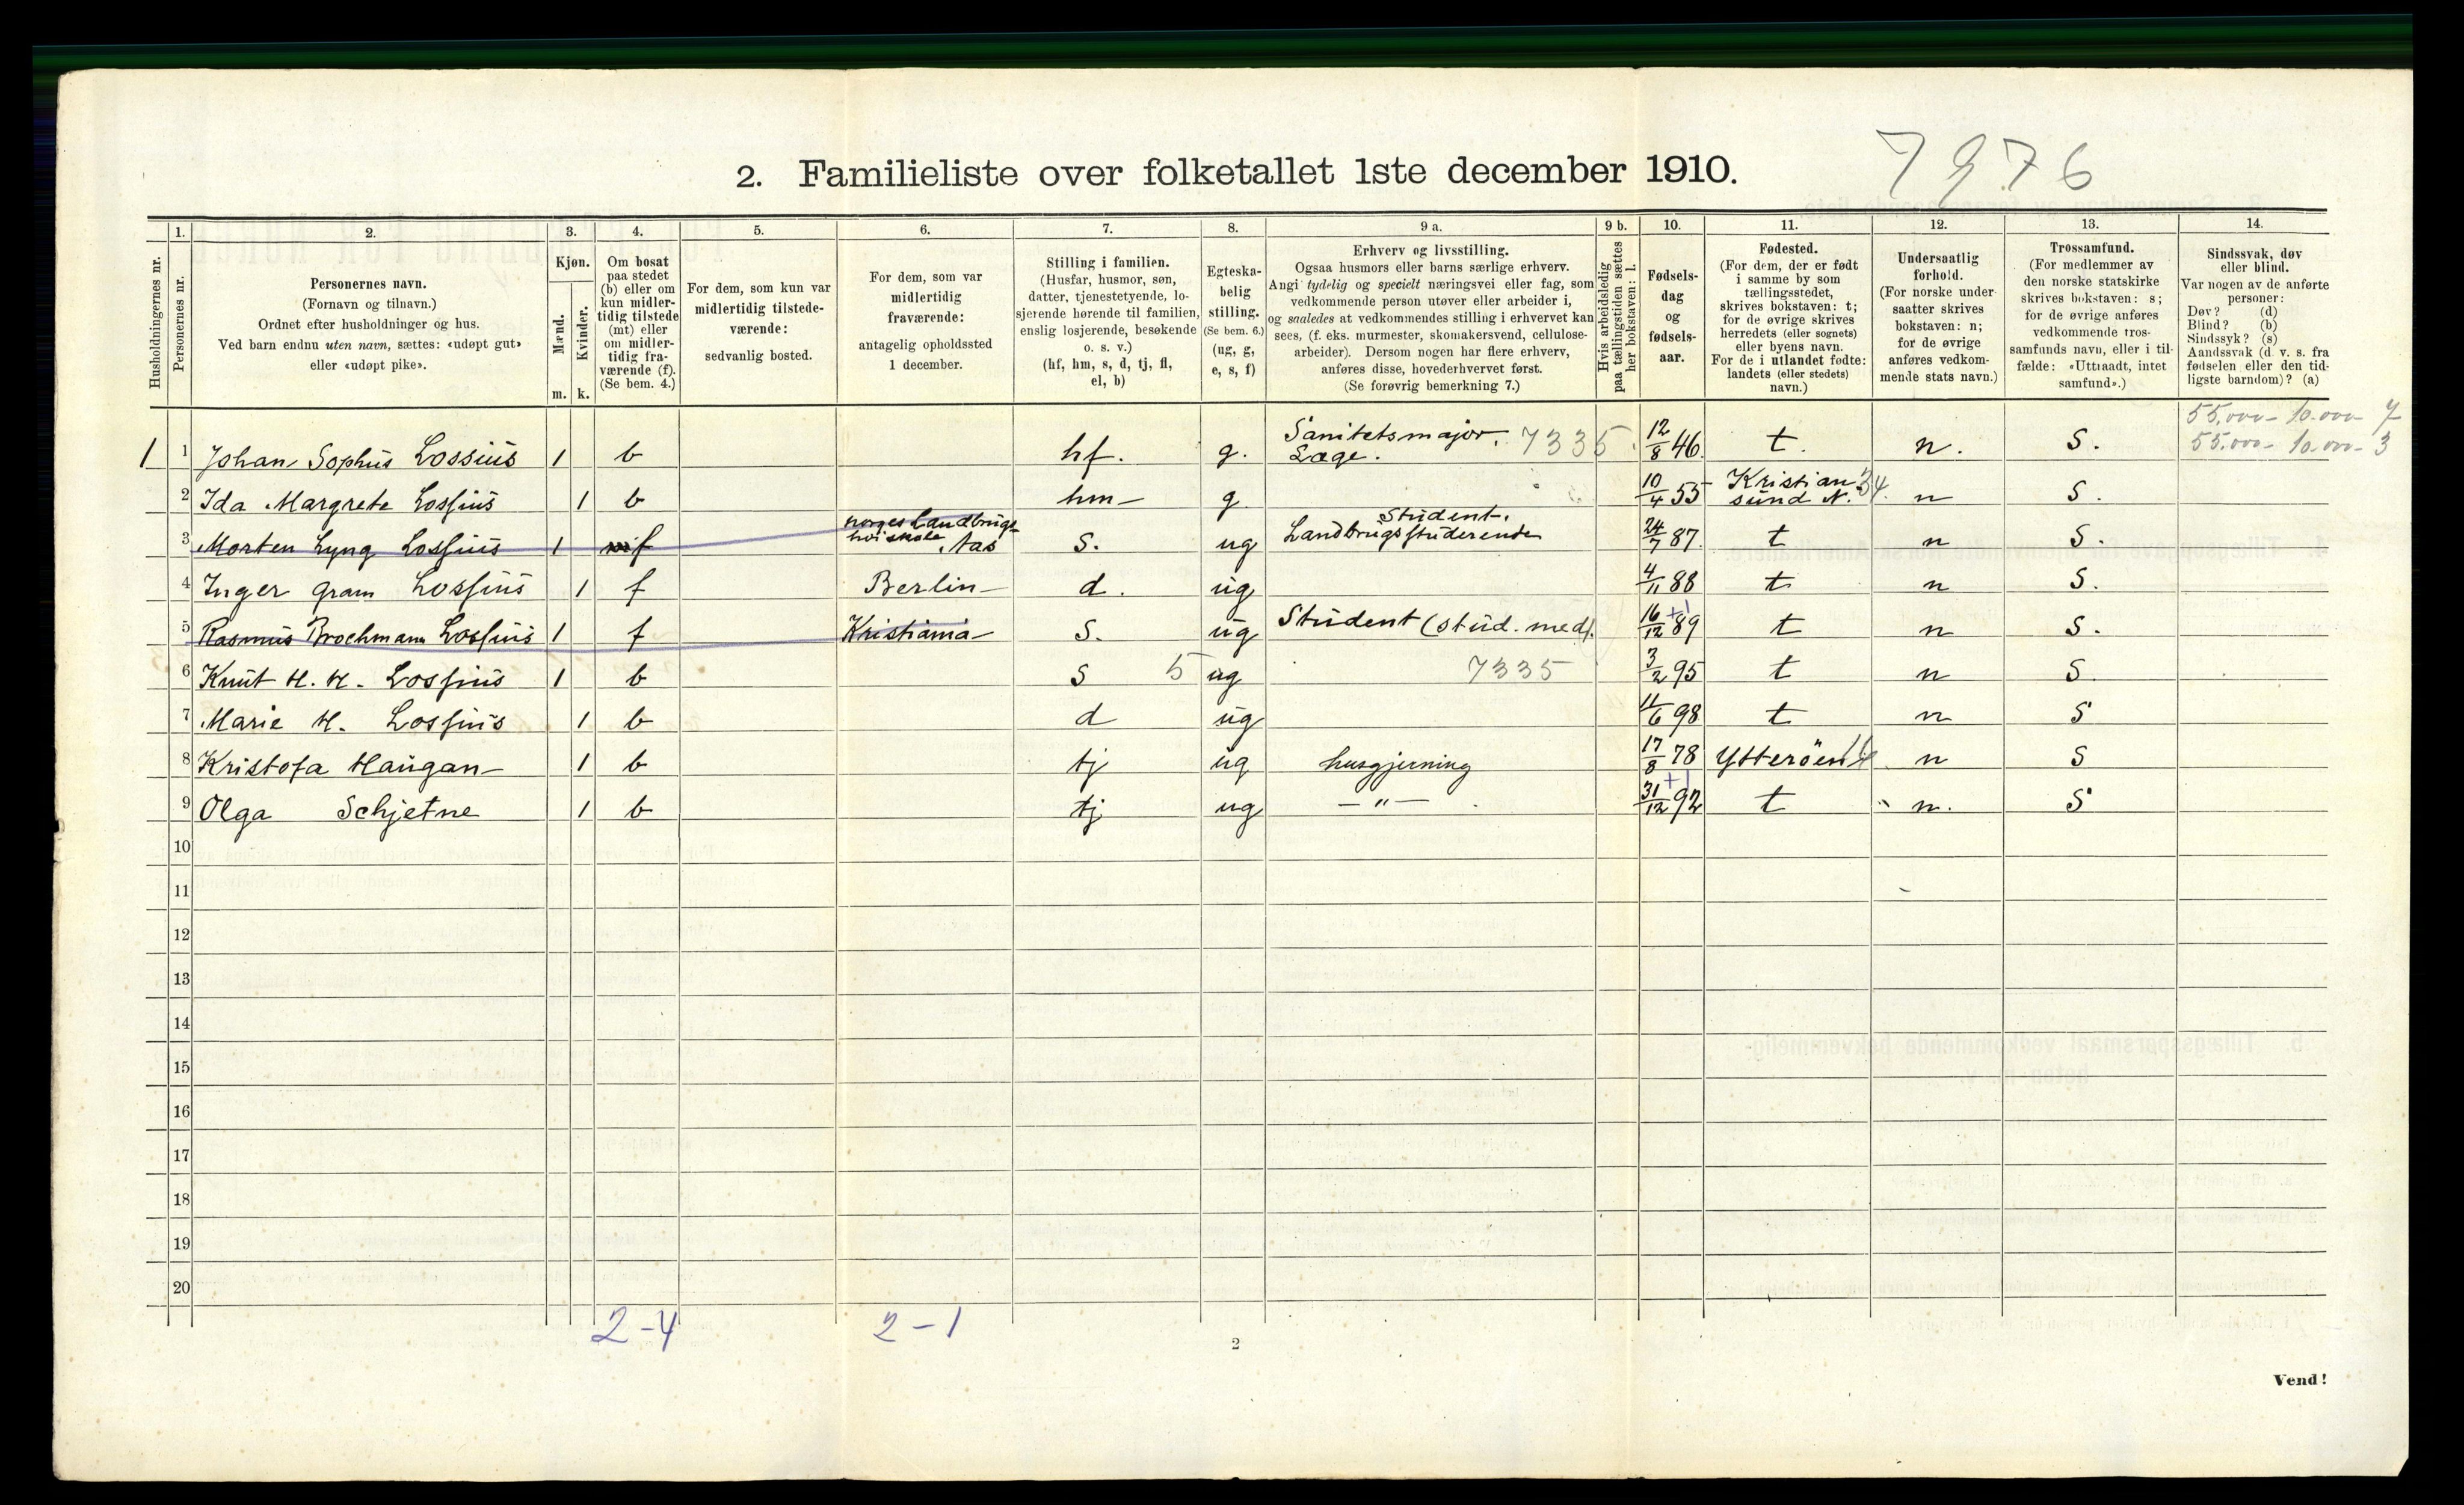 7976
2. Familieliste over folketallet 1ste december 1910.
1. 2. 3. 4. 5. 6. 7. 8. 9 a. 9 b. 10. 11. 12. 13. 14.
Husholdningernes nr.
Personernes nr.
Personernes navn.
(Fornavn og tilnavn.)
Ordnet efter husholdninger og hus.
Ved barn endnu uten navn, sættes: «udøpt gut»
eller «udøpt pike».
Kjøn.
Mænd.
Kvinder.
m. k.
Om bosat
paa stedet
(b) eller om
kun midler-
tidig tilstede
(mt) eller
om midler-
tidig fra-
værende (f).
(Se bem. 4.)
For dem, som kun var
midlertidig tilstede-
værende:
sedvanlig bosted.
For dem, som var
midlertidig
fraværende:
antagelig opholdssted
1 december.
Stilling i familien.
(Husfar, husmor, søn,
datter, tjenestetyende, lo-
sjerende hørende til familien,
enslig losjerende, besøkende
o. s. v.)
(hf, hm, s, d, tj, fl,
el, b)
Egteska-
belig
stilling.
(Se bem. 6.)
(ug, g,
e, s, f)
Erhverv og livsstilling.
Ogsaa husmors eller barns særlige erhverv.
Angi tydelig og specielt næringsvei eller fag, som
vedkommende person utøver eller arbeider i,
og saaledes at vedkommendes stilling i erhvervet kan
sees, (f. eks. murmester, skomakersvend, cellulose-
arbeider). Dersom nogen har flere erhverv,
anføres disse, hovederhvervet først.
(Se forøvrig bemerkning 7.)
Hvis arbeidsledig
paa tællingstiden sættes
her bokstaven: l.
Fødsels-
dag
og
fødsels-
aar.
Fødested.
(For dem, der er født
i samme by som
tællingsstedet,
skrives bokstaven: t;
for de øvrige skrives
herredets (eller sognets)
eller byens navn.
For de i utlandet fødte:
landets (eller stedets)
navn.)
Undersaatlig
forhold.
(For norske under-
saatter skrives
bokstaven: n;
for de øvrige
anføres vedkom-
mende stats navn.)
Trossamfund.
(For medlemmer av
den norske statskirke
skrives bokstaven: s;
for de øvrige anføres
vedkommende tros-
samfunds navn, eller i til-
fælde: «Uttraadt, intet
samfund».)
Sindssvak, døv
eller blind.
Var nogen av de anførte
personer:
Døv? (d)
Blind? (b)
Sindssyk? (s)
Aandssvak (d. v. s. fra
fødselen eller den tid-
ligste barndom)? (a)
55.000 - 10.000 - 4
55.000 - 10.000 - 3
1 1 Johan Sophus Lossius 1 b hf. g. Sanitetsmajor. 7335 Læge. 12/8 46. t. n. S.
2 Ida Margrete Lossius 1 b hm g. 10/4 55 Kristiansund N. 34. n S.
3 Morten Lyng Lossius 1 f norges Landbrugs-høiskole. Aas S. ug Student. Landbrugsstuderende 24/7 87. t n S.
4 Inger Gram Lossius 1 f Berlin d. ug 4/11 88 t n S.
5 Rasmus Brochmann Lossius 1 f Kristiania S. ug Student (stud. med). 16/12 89 +1 t n S.
6 Knut H. H. Lossius 1 b S 5 ug 7335 3/2 95 t n S.
7 Marie H. Lossius 1 b d ug 11/6 98 t n S
8 Kristofa Haugan 1 b tj ug husgjerning 17/8 78 Ytterøen n S
9 Olga Schjetne 1 b tj ug — " — 31/12 92 +1 t n. S
10
11
12
13
14
15
16
17
18
19
20
2-4 2-1
2
Vend!